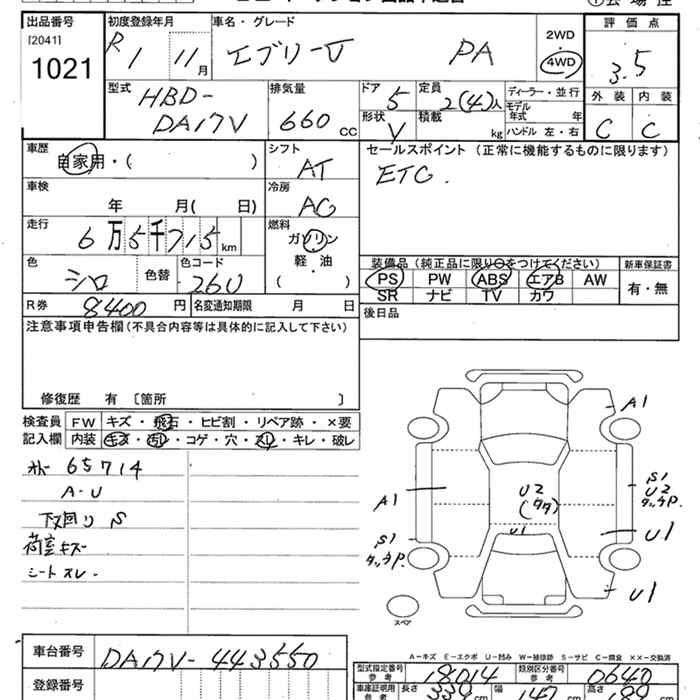 出品番号 初度登録年月 車名・グレード 評価点
[2041]
1021
R1 11月
エブリーV PA
2WD
4WD
3.5
外装 内装
C C
型式 HBD-
DA17V
排気量 660cc
ドア 5
定員 2(4)人
ディーラー・並行
モデル年式 年
形状 V
積載 kg
ハンドル 左・右
車歴 自家用・( )
シフト AT
セールスポイント(正常に機能するものに限ります)
ETC.
車検 年 月( 日)
冷房 AC
走行 6万5千715km
燃料 ガソリン
軽・油
( )
色 シロ 色替
色コード 26U
装備品(純正品に限り○をつけてください) 新車保証書
PS PW ABS エアB AW 有・無
SR ナビ TV カワ
R券 8400円 名変通知期限 月 日
後日品
注意事項申告欄(不具合内容等は具体的に記入して下さい)
修復歴 有〔箇所 〕
検査員 FW キズ・飛石・ヒビ割・リペア跡・×要
記入欄 内装 キズ・汚レ・コゲ・穴・スレ・キレ・破レ
65714
A・U
下回り S
荷室キズ
シートスレ
A1
A1
S1
U2
タッチP.
U2
(タタ)
U1
U1
S1
タッチP.
U1
スペア
A-キズ E-エクボ U-凹み W-補修跡 S-サビ C-腐食 ××-交換済
車台番号 DA17V-443550
型式指定番号 参考 18014
類別区分番号 参考 0640
登録番号
車庫証明用 参考 長さ 339 幅 147 高さ 189